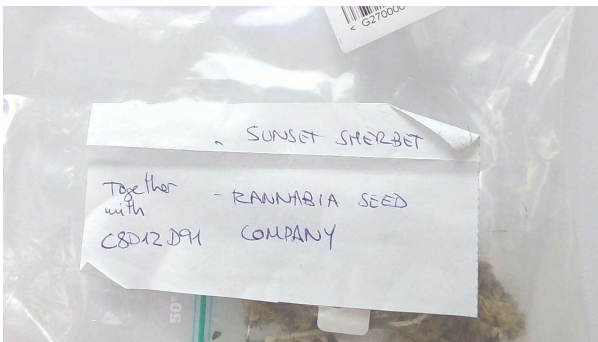 < G27000
. SUNSET SHERBET
Together
with
C8D12D91
- RANNABIA SEED
COMPANY
50